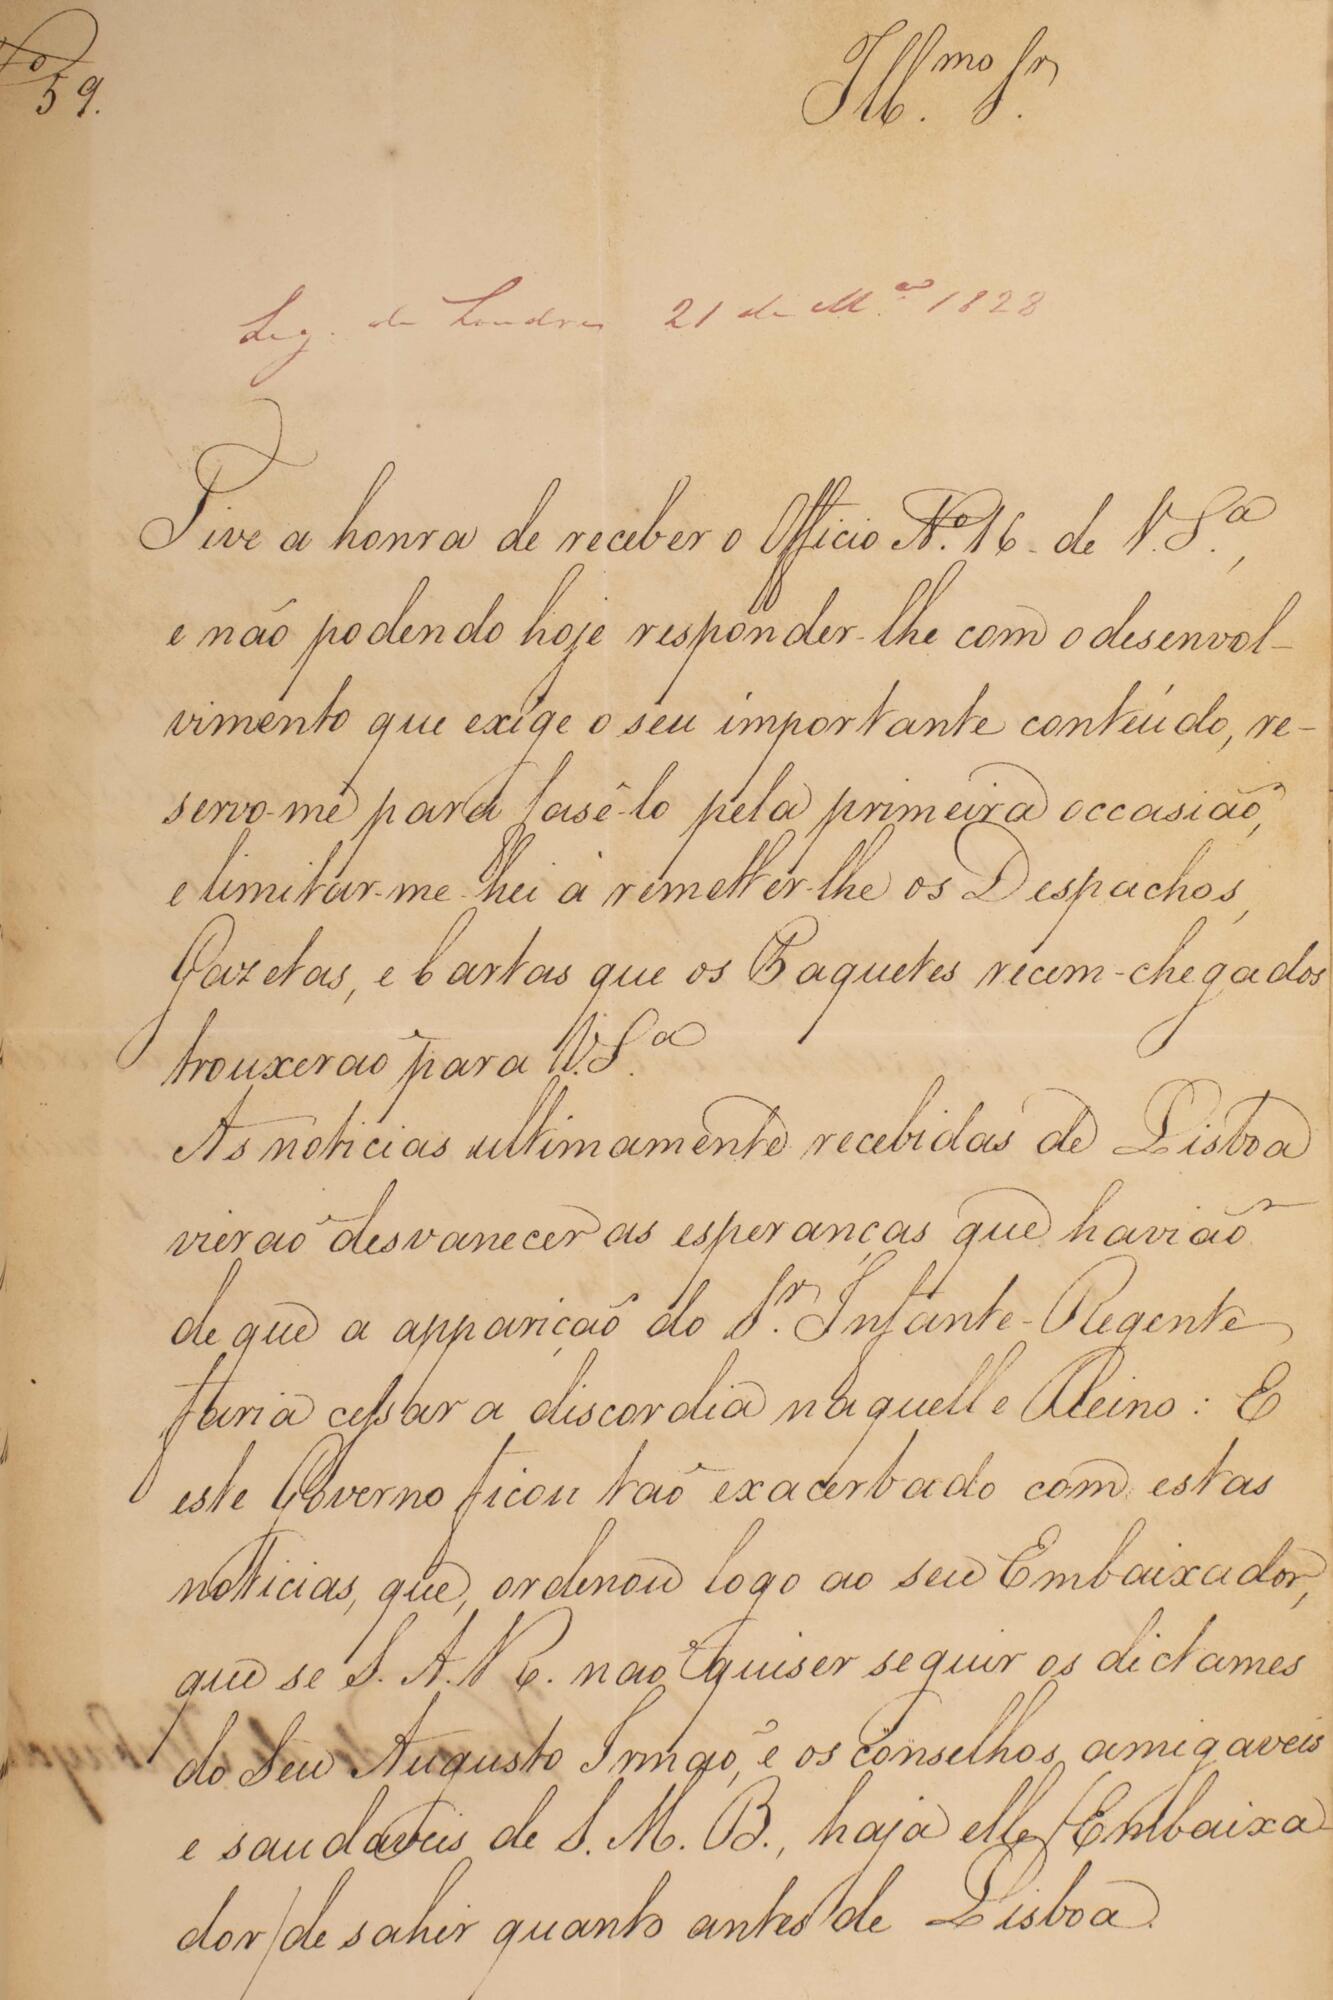 Nº 59.
Ill.mo Sr.
Leg. de Londres 21 de M.ço 1828
Tive a honra de receber o Officio Nº 16 - de V.S.ª,
e não podendo hoje responder-lhe com o desenvol-
vimento que exige o seu importante conteúdo, re-
servo-me para fasê-lo pela primeira occasião,
e limitar-me-hei a remetter-lhe os Despachos,
Gazetas, e Cartas que os Paquetes recem-chegados
trouxerão para V.S.ª
As noticias ultimamente recebidas de Lisboa
vierão desvanecer as esperanças que havião
de que a appariçaõ do Sr. Infante-Regente
faria cessar a discordia naquelle Reino: E
este Governo ficou taõ exacerbado com estas
noticias, que, ordenou logo ao seu Embaixador,
que se S. A. R. naõ quiser seguir os dictames
do Seu Augusto Irmaõ, e os conselhos amigaveis
e saudaveis de S. M. B., haja elle (Embaixa-
dor) de sahir quanto antes de Lisboa.